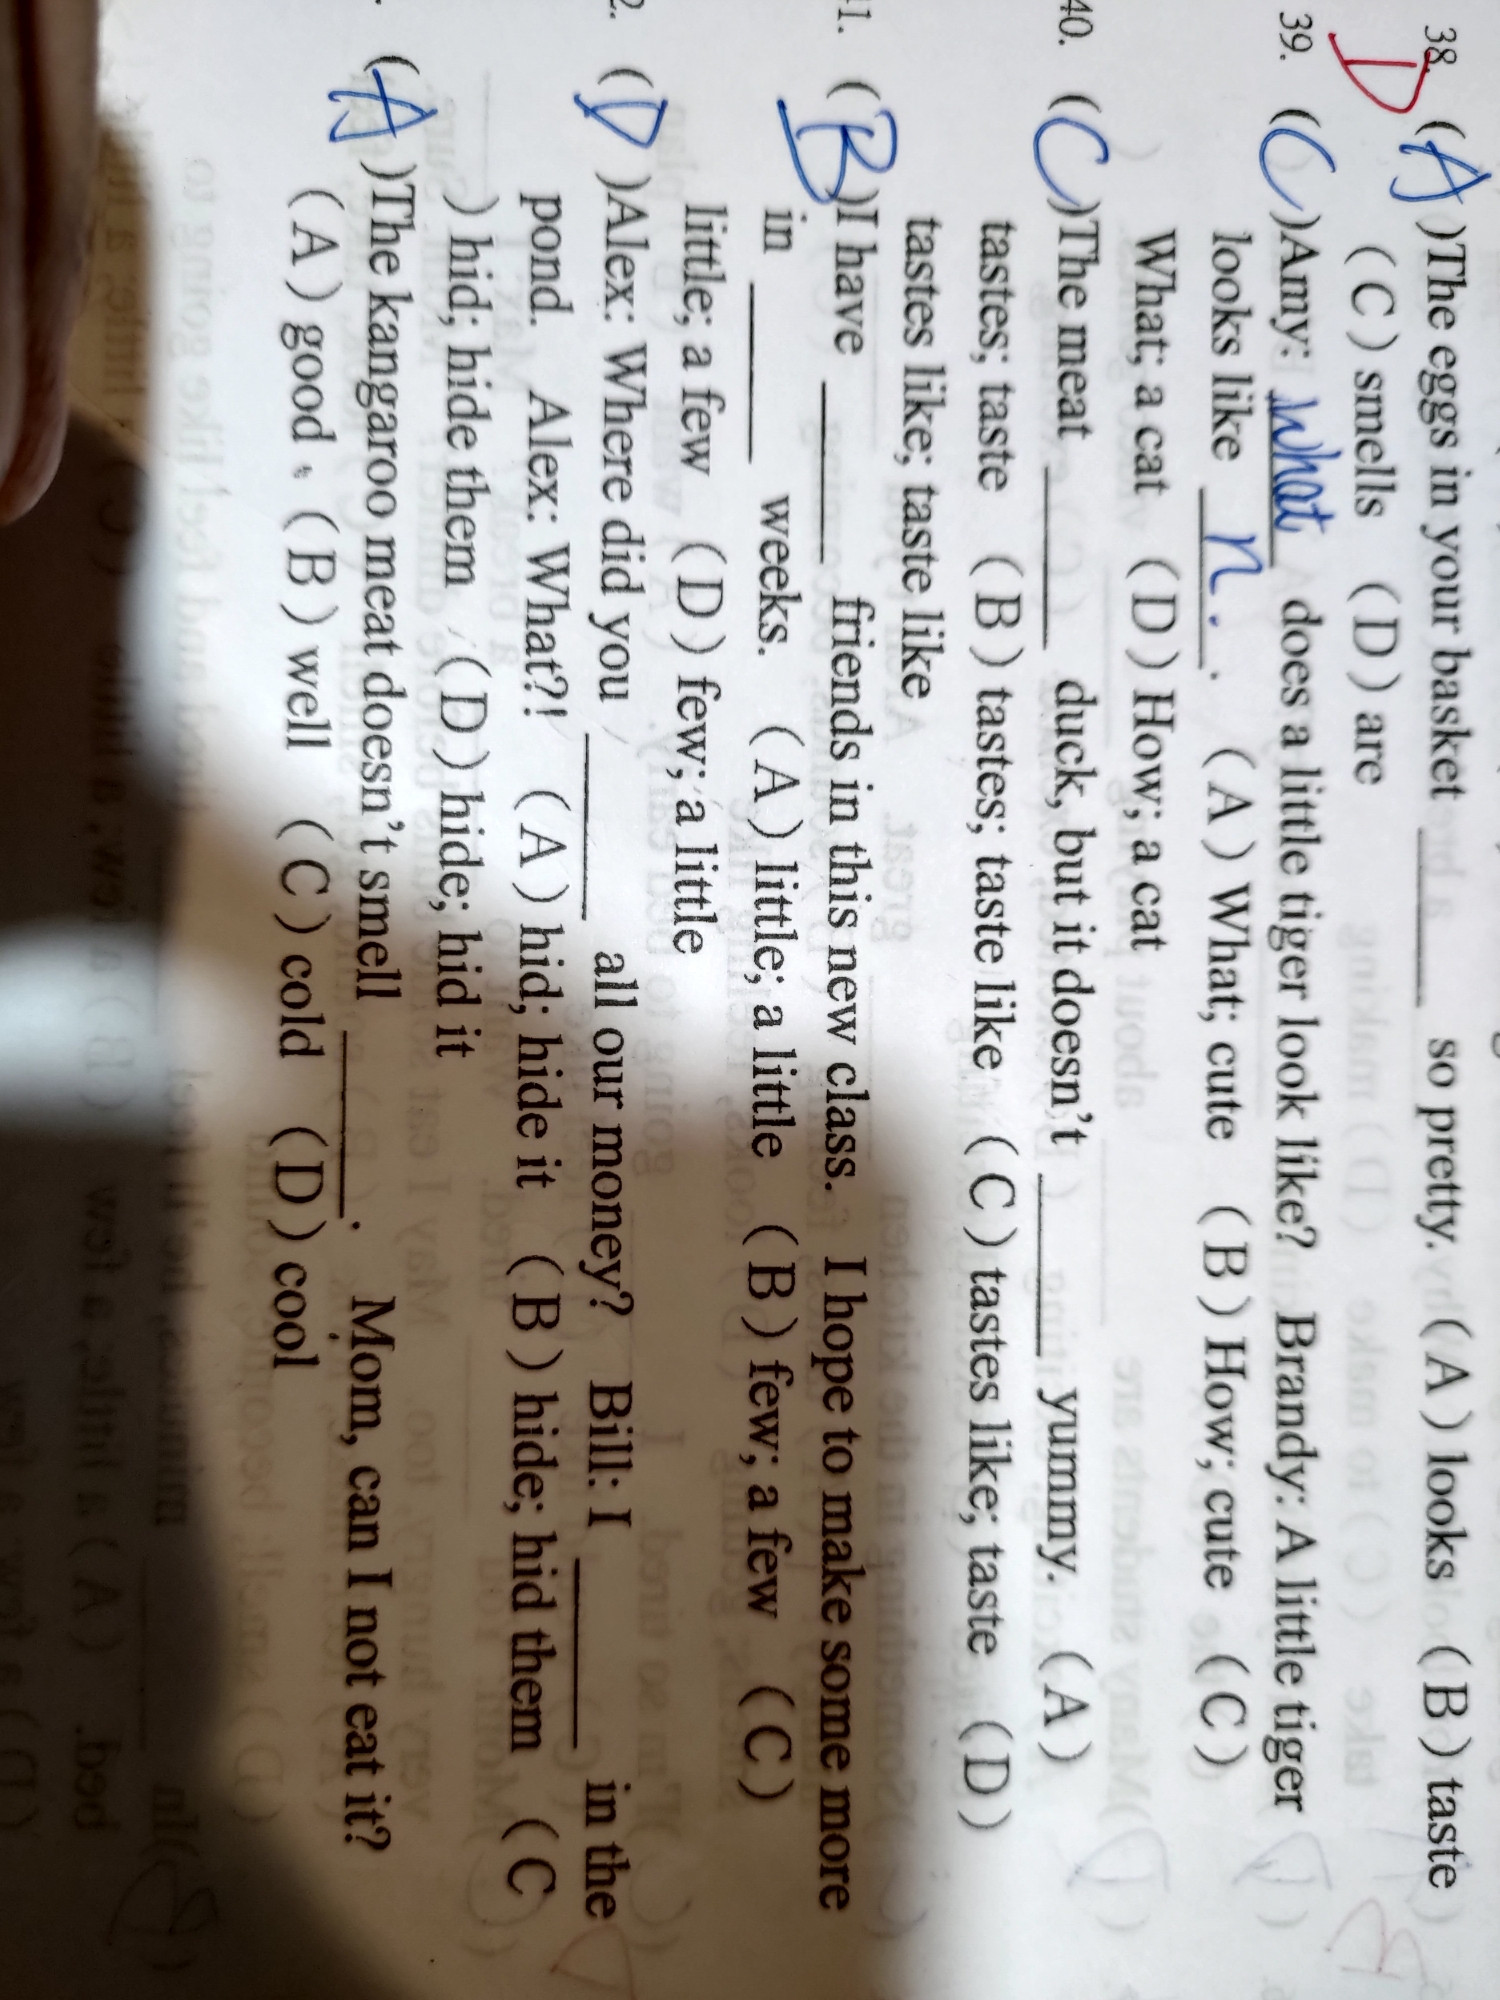 38. (A)The eggs in your basket ______ so pretty. (A) looks (B) taste
D
(C) smells (D) are
39. (C)Amy: what does a little tiger look like? Brandy: A little tiger
looks like n. . (A) What; cute (B) How; cute (C)
What; a cat (D) How; a cat
40. (C)The meat ______ duck, but it doesn't ______ yummy. (A)
tastes; taste (B) tastes; taste like (C) tastes like; taste (D)
tastes like; taste like
1. (B)I have ______ friends in this new class. I hope to make some more
in ______ weeks. (A) little; a little (B) few; a few (C)
little; a few (D) few; a little
2. (D)Alex: Where did you ______ all our money? Bill: I ______ in the
pond. Alex: What?! (A) hid; hide it (B) hide; hid them (C
) hid; hide them (D) hide; hid it
. (A)The kangaroo meat doesn't smell ______. Mom, can I not eat it?
(A) good (B) well (C) cold (D) cool